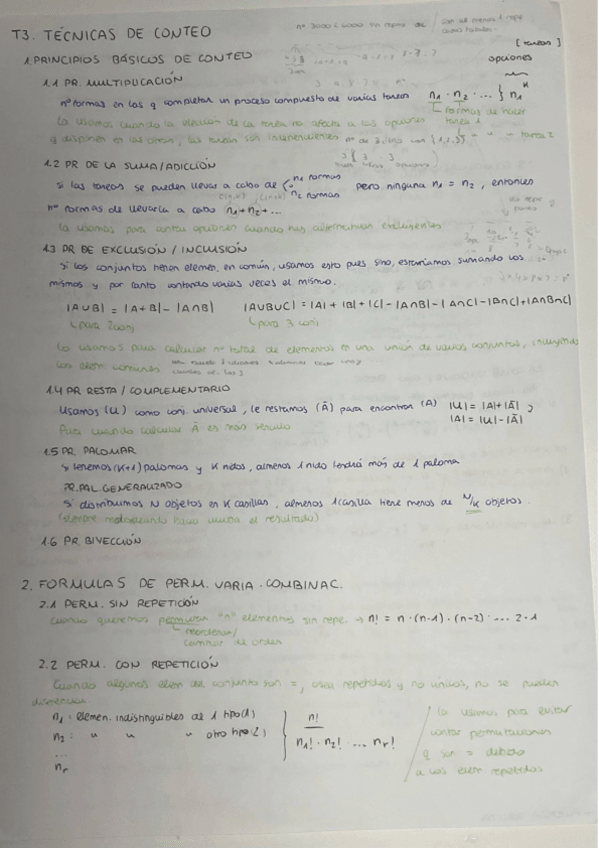 T3. TÉCNICAS DE CONTEO
1. PRINCIPIOS BÁSICOS DE CONTEO
[tareas]
opciones
1.1 PR. MULTIPLICACIÓN
nº formas en las q completar un proceso compuesto de varias tareas n₁ · n₂ · ... } n₁ᴷ
La usamos cuando la elección de la tarea no afecta a las opciones
formas de hacer tarea 1
q dispones en las otras, las tareas son independientes
tarea 2
1.2 PR DE LA SUMA/ADICCIÓN
Si las tareas se pueden llevar a cabo de { n₁ formas n₂ formas pero ninguna n₁ = n₂, entonces
nº formas de llevarla a cabo n₁+n₂+...
la usamos para contar opciones cuando hay alternativas excluyentes
1.3 PR DE EXCLUSIÓN / INCLUSIÓN
Si los conjuntos tienen elemen. en común, usamos esto pues sino, estaríamos sumando los
mismos y por tanto contando varias veces el mismo.
|A∪B| = |A+B| - |A∩B| |A∪B∪C| = |A| + |B| + |C| - |A∩B| - |A∩C| - |B∩C| + |A∩B∩C|
↳ para 2 conj ↳ para 3 conj
Lo usamos para calcular nº total de elementos en una unión de varios conjuntos,
los elem comunes
1.4 PR RESTA / COMPLEMENTARIO
Usamos (U) como conj. universal, le restamos (Ā) para encontrar (A) |U| = |A|+|Ā|
|A| = |U|-|Ā|
Para cuando calcular Ā es más sencillo
1.5 PR. PALOMAR
Si tenemos (K+1) palomas y K nidos, almenos 1 nido tendrá más de 1 paloma
PR. PAL. GENERALIZADO
Si distribuimos N objetos en K casillas, almenos 1 casilla tiene menos de N/K objetos.
(siempre redondeando hacia arriba el resultado)
1.6 PR. BIYECCIÓN
2. FORMULAS DE PERM. VARIA. COMBINAC.
2.1 PERM. SIN REPETICIÓN
Cuando queremos permutar "n" elementos sin repe. → n! = n · (n-1) · (n-2) · ... 2 · 1
↳ reordenar/
cambiar de orden
2.2 PERM. CON REPETICIÓN
Cuando algunos elem del conjunto son =, osea repetidos y no únicos, no se pueden
diferenciar.
n₁ : elemen. indistinguibles de 1 tipo(1)
n₂ : " " " otro tipo(2)
...
nᵣ
n! / n₁! · n₂! · ... nᵣ!
lo usamos para evitar
contar permutaciones
q son = debido
a los elem. repetidos